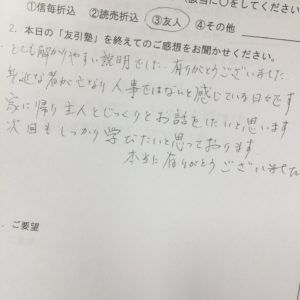 該当に○をしてください
①信毎折込 ②読売折込 ③友人 ④その他
2. 本日の「友引塾」を終えてのご感想をお聞かせください。
とても解かりやすい説明でした 有りがとうございました
身近な者が亡なり 人事をはなんと感じている日々です
家に帰り主人とじっくりとお話をしたいと思います
次回もしっかり学びたいと思っております
本当に有りがとうございました
ご要望